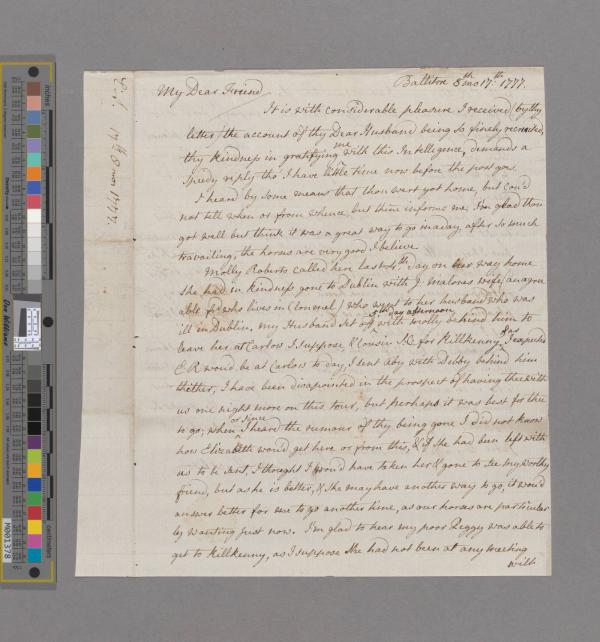 Ballitore 8th mo 17th 1777.
My Dear Freind
It is with considerable pleasure I received (by thy
letter) the account of thy Dear Husband being so finely recruited,
thy kindness in gratifying me with this Intelligence, demands a
speedy reply tho' I have little time now before the post goes.
I heard by some means that thou wert got home, but cou'd
not tell when or from whence, but thine informs me. I'm glad thou
got well but think it was a great way to go in a day, after so much
travailing, the horses are very good I believe.
Molly Roberts called here last 4th day on her way home
she had in kindness gone to Dublin with J: Malones wife (an agree
able frd who lives in Conenal) who went to her husband who was
ill in Dublin, my Husband set off 5th day afternoon with molly behind him to
leave her at Carlow I suppose, & Cousin for Killkenny, as I expected
E R wou'd be at Carlow to day, I sent Aby with Debby behind him
thither, I have been disapointed in the prospect of having thee with
us one night more on this tour, but perhaps it was best for thee
to go, when or since I heard the rumour of thy being gone I did not know
how Elizabeth would get here or from this, & if she had been left with
us to be sent, I thought I wou'd have taken her & gone to see my worthy
friend, but as he is better, & she may have another way to go, it wou'd
answer better for me to go another time, as our horses are particular
ly wanting just now. I'm glad to hear my poor Peggy was able to
get to Killkenny, as I suppose she had not been at any meeting
with
17th 8 mo 1777.
inches
centimetres
Don Williams
M001378